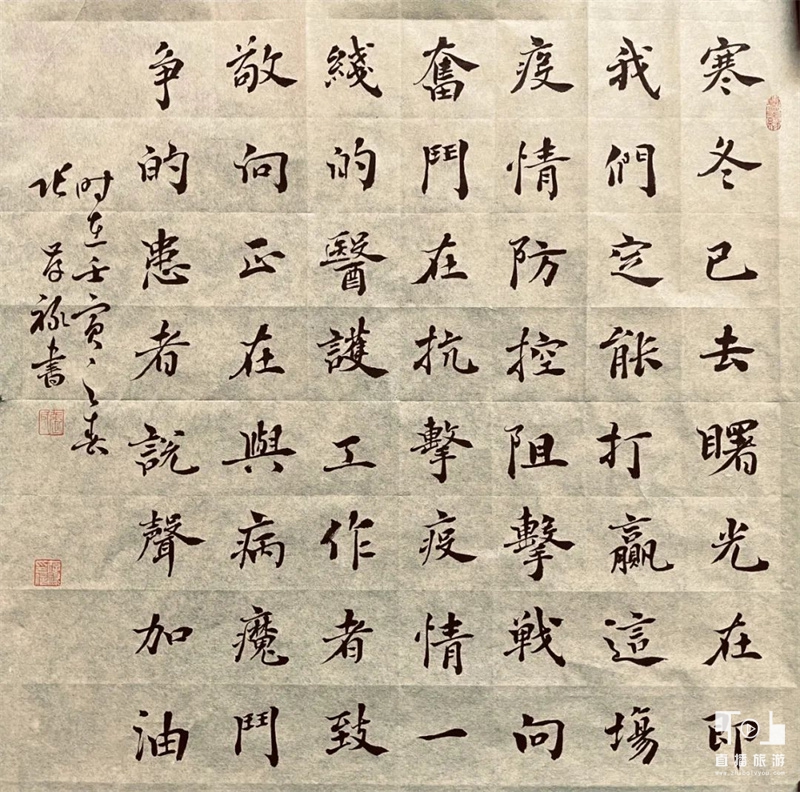 寒冬已去曙光在即
我們定能打贏這塲
疫情防控阻擊戰向
奮鬥在抗擊疫情一
綫的醫護工作者致
敬向正在與病魔鬥
争的患者說聲加油
时在壬寅之春
张禄書
直播旅游